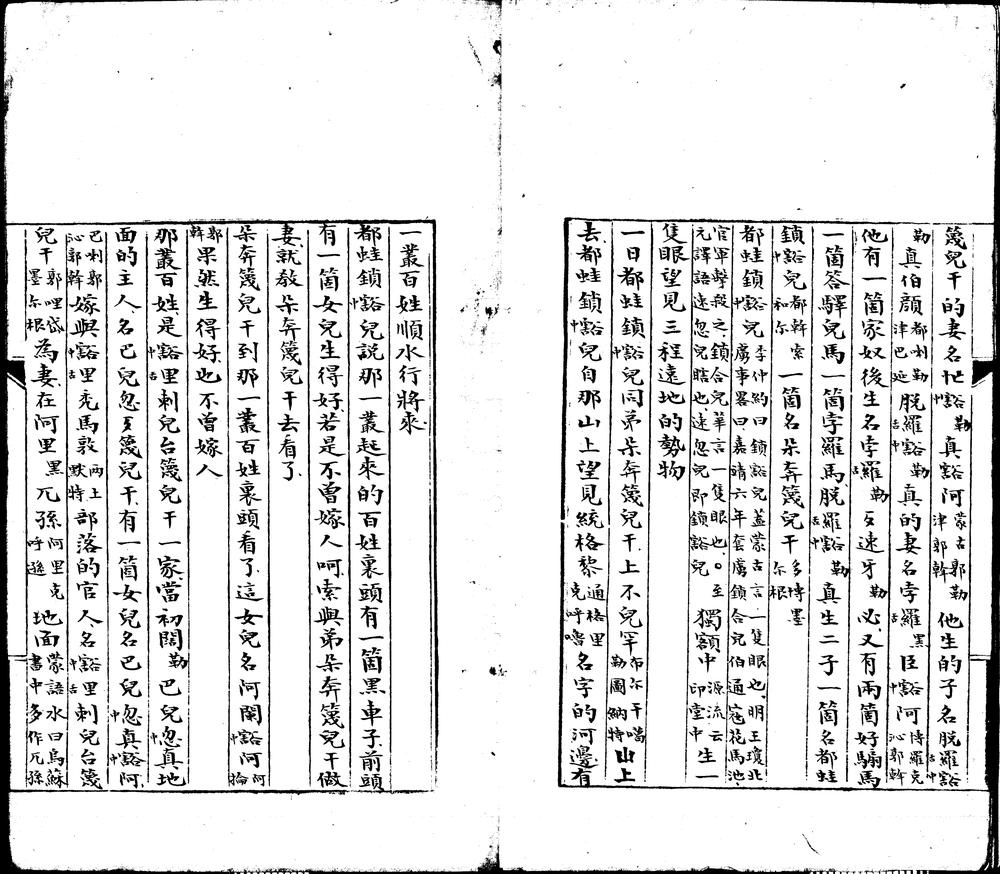 篾兒干的妻名忙豁勒真豁阿蒙古郭勒津郭斡他生的子名脫羅豁
勒真伯顏都喇勒津巴延脫羅豁勒真的妻名孛羅黑臣豁阿博羅克沁郭斡
他有一箇家奴後生名孛羅勒歹速牙勒必又有兩箇好騸馬
一箇答驛兒馬一箇孛羅馬脫羅豁勒真生二子一箇名都蛙
鎖豁兒都斡索和爾一箇名朵奔篾兒干多博墨爾根
都蛙鎖豁兒李仲約曰鎖豁兒蓋蒙古言一隻眼也明王瓊北
虜事畧曰嘉靖六年套虜鎖合兒伯通寇花馬池
官軍擊殺之鎖合兒華言一隻眼也。至
元譯語速忽兒瞎也速忽兒即鎖豁兒獨額中源流云印堂中生一
隻眼望見三程遠地的勢物
一日都蛙鎖豁兒同弟朵奔篾兒干上不兒罕布尔干噶勒圖納特山上
去都蛙鎖豁兒自那山上望見統格黎通格里克呼嚕名字的河邊有
一叢百姓順水行將來
都蛙鎖豁兒說那一叢起來的百姓裏頭有一箇黑車子前頭
有一箇女兒生得好若是不曾嫁人呵索與弟朵奔篾兒干做
妻就教朵奔篾兒干去看了
朵奔篾兒干到那一叢百姓裏頭看了這女兒名阿闌豁阿阿掄
郭斡果然生得好也不曾嫁人
那叢百姓是豁里剌兒台篾兒干一家當初闊勒巴兒忽真地
面的主人名巴兒忽歹篾兒干有一箇女兒名巴兒忽真豁阿
巴喇郭沁郭斡嫁與豁里禿馬敦兩土默特部落的官人名豁里剌兒台篾
兒干郭哩岱墨尔根為妻在阿里黑兀孫阿里克呼遜地面蒙語水曰烏蘇書中多作兀孫